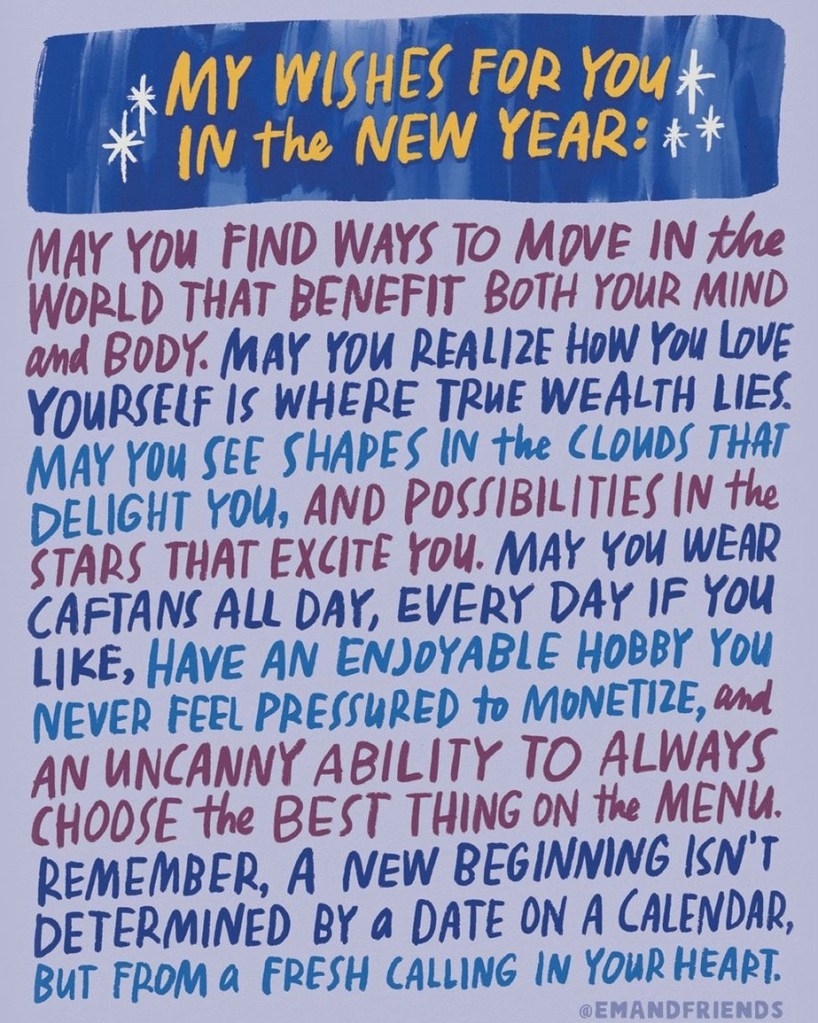 MY WISHES FOR YOU
IN the NEW YEAR:
MAY YOU FIND WAYS TO MOVE IN the
WORLD THAT BENEFIT BOTH YOUR MIND
and BODY. MAY YOU REALIZE HOW YOU LOVE
YOURSELF IS WHERE TRUE WEALTH LIES.
MAY YOU SEE SHAPES IN the CLOUDS THAT
DELIGHT YOU, AND POSSIBILITIES IN the
STARS THAT EXCITE YOU. MAY YOU WEAR
CAFTANS ALL DAY, EVERY DAY IF YOU
LIKE, HAVE AN ENJOYABLE HOBBY YOU
NEVER FEEL PRESSURED to MONETIZE, and
AN UNCANNY ABILITY TO ALWAYS
CHOOSE the BEST THING ON the MENU.
REMEMBER, A NEW BEGINNING ISN'T
DETERMINED BY a DATE ON A CALENDAR,
BUT FROM a FRESH CALLING IN YOUR HEART.
@EMANDFRIENDS